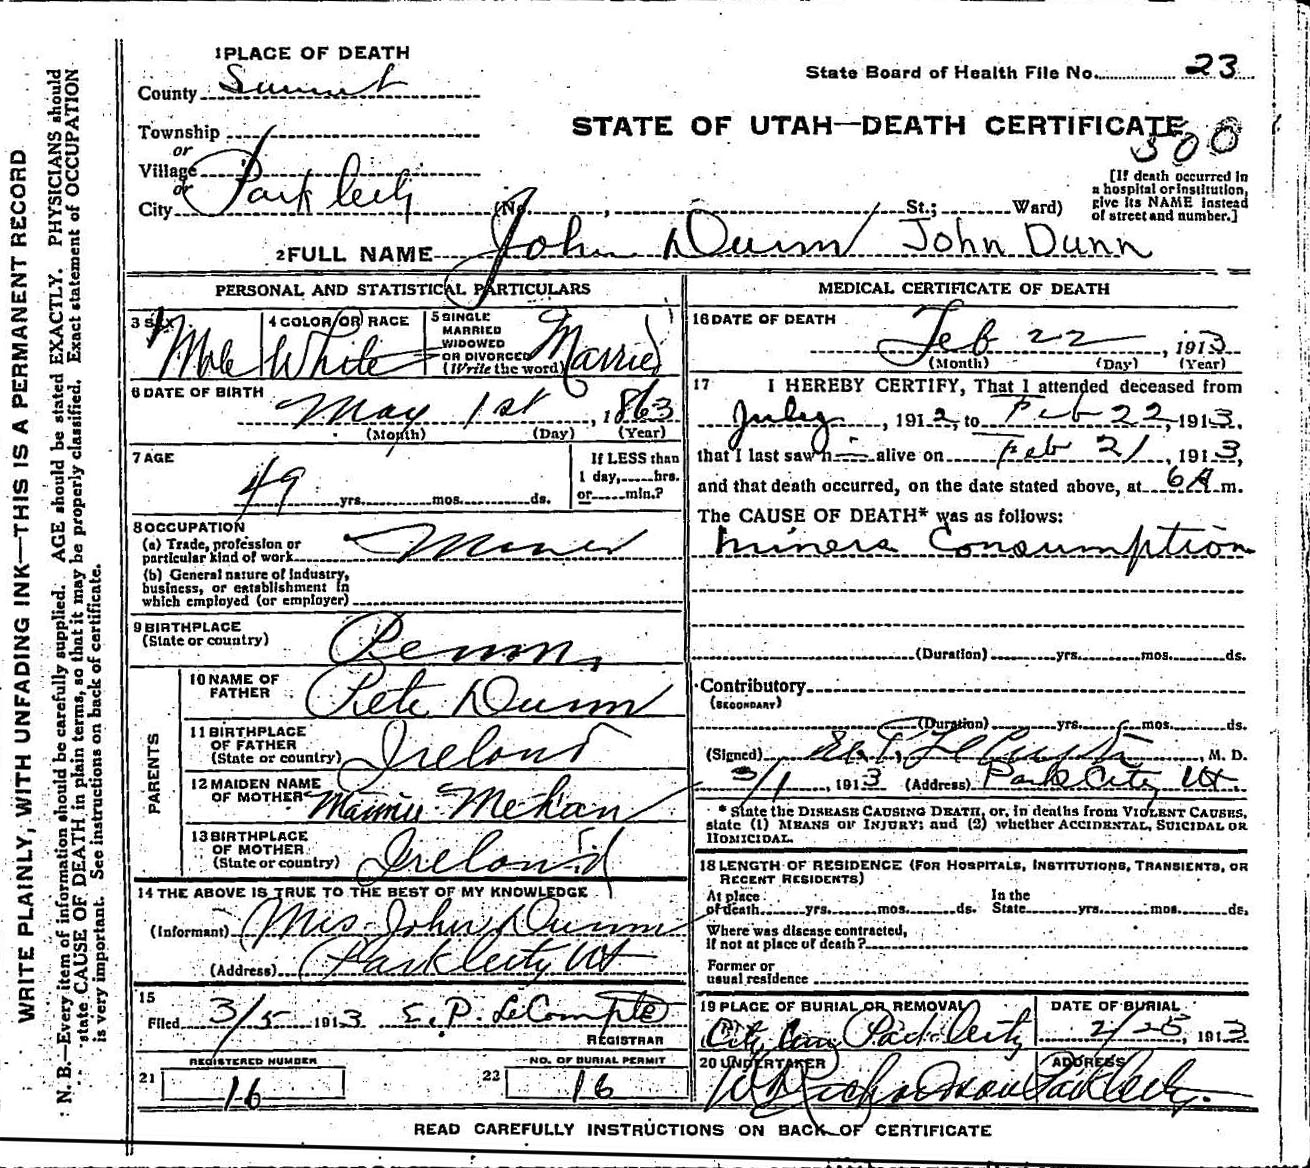 WRITE PLAINLY, WITH UNFADING INK—THIS IS A PERMANENT RECORD
N. B.—Every item of information should be carefully supplied. AGE should be stated EXACTLY. PHYSICIANS should
state CAUSE OF DEATH in plain terms, so that it may be properly classified. Exact statement of OCCUPATION
is very important. See instructions on back of certificate.
1 PLACE OF DEATH
County Summit
Township
or
Village
or
City Park City
State Board of Health File No. 23
STATE OF UTAH—DEATH CERTIFICATE
300
(No. , St.; Ward)
[If death occurred in
a hospital or institution,
give its NAME instead
of street and number.]
2 FULL NAME John Dunn John Dunn
PERSONAL AND STATISTICAL PARTICULARS
3 SEX Male
4 COLOR OR RACE White
5 SINGLE
MARRIED
WIDOWED
OR DIVORCED
(Write the word) Married
6 DATE OF BIRTH
May 1st, 1863
(Month) (Day) (Year)
7 AGE
49 yrs. mos. ds.
If LESS than
1 day, hrs.
or min.?
8 OCCUPATION
(a) Trade, profession or
particular kind of work Miner
(b) General nature of industry,
business, or establishment in
which employed (or employer)
9 BIRTHPLACE
(State or country) Penn,
PARENTS
10 NAME OF
FATHER Pete Dunn
11 BIRTHPLACE
OF FATHER
(State or country) Ireland
12 MAIDEN NAME
OF MOTHER Mamie Mehan
13 BIRTHPLACE
OF MOTHER
(State or country) Ireland
14 THE ABOVE IS TRUE TO THE BEST OF MY KNOWLEDGE
(Informant) Mrs John Dunn
(Address) Park City Ut
15
Filed 3/5 1913 E. P. LeCompte
REGISTRAR
REGISTERED NUMBER
21 16
NO. OF BURIAL PERMIT
22 16
MEDICAL CERTIFICATE OF DEATH
16 DATE OF DEATH
Feb 22, 1913
(Month) (Day) (Year)
17 I HEREBY CERTIFY, That I attended deceased from
July, 1912, to Feb 22, 1913,
that I last saw h alive on Feb 21, 1913,
and that death occurred, on the date stated above, at 6 A m.
The CAUSE OF DEATH* was as follows:
Miners Consumption
(Duration) yrs. mos. ds.
Contributory
(SECONDARY)
(Duration) yrs. mos. ds.
(Signed) E. P. LeCompte, M. D.
3/1, 1913 (Address) Park City Ut.
* State the DISEASE CAUSING DEATH, or, in deaths from VIOLENT CAUSES,
state (1) MEANS OF INJURY; and (2) whether ACCIDENTAL, SUICIDAL OR
HOMICIDAL.
18 LENGTH OF RESIDENCE (FOR HOSPITALS, INSTITUTIONS, TRANSIENTS, OR
RECENT RESIDENTS)
At place
of death yrs. mos. ds.
In the
State yrs. mos. ds.
Where was disease contracted,
if not at place of death?
Former or
usual residence
19 PLACE OF BURIAL OR REMOVAL
City Cem Park City
DATE OF BURIAL
2/25, 1913
20 UNDERTAKER
W Richardson
ADDRESS
Park City.
READ CAREFULLY INSTRUCTIONS ON BACK OF CERTIFICATE